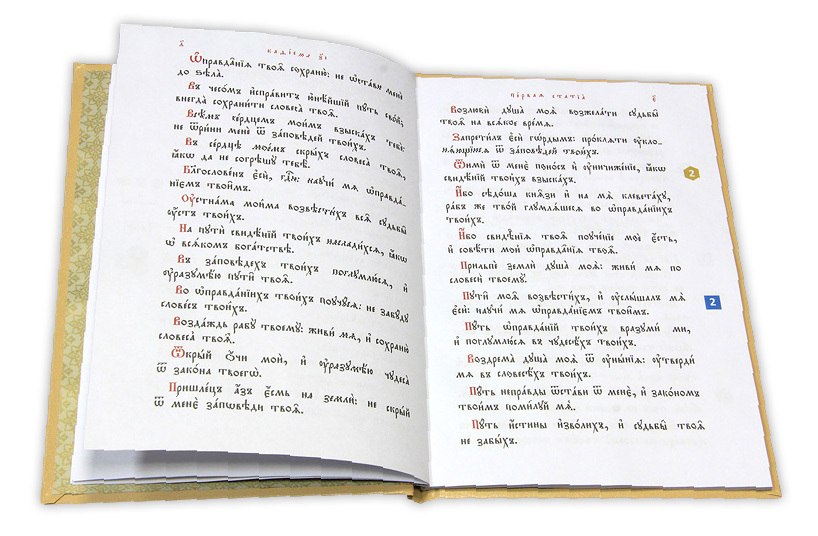 д҃
каѳїсма з҃і
Ѡ҆правда̑нїѧ твоѧ̑ сохраню̀: не ѡ҆ста́ви менѐ
до ѕѣла̀.
Въ чесо́мъ и҆спра́витъ ю҆нѣ́йшїй пꙋ́ть сво́й;
внегда̀ сохрани́ти словеса̀ твоѧ̑.
Всѣ́мъ се́рдцемъ мои́мъ взыска́хъ тебѐ:
не ѿри́ни менѐ ѿ за́повѣдей твои́хъ.
Въ се́рдцѣ мое́мъ скры́хъ словеса̀ твоѧ̑,
ꙗ҆́кѡ да не согрѣшꙋ̀ тебѣ̀.
Благослове́нъ є҆сѝ, гдⷭ҇и: наꙋчи́ мѧ ѡ҆правда́-
нїємъ твои̑мъ.
Оу҆стна́ма мои́ма возвѣсти́хъ всѧ̑ сꙋдьбы̑
ᲂу҆́стъ твои́хъ.
На пꙋтѝ свидѣ́нїй твои́хъ наслади́хсѧ, ꙗ҆́кѡ
ѡ҆ всѧ́комъ бога́тствѣ.
Въ за́повѣдехъ твои́хъ поглꙋмлю́сѧ, и҆
ᲂу҆разꙋмѣ́ю пꙋти̑ твоѧ̑.
Во ѡ҆правда́нїихъ твои́хъ поꙋчꙋ́сѧ: не забꙋ́дꙋ
слове́съ твои́хъ.
Возда́ждь рабꙋ̀ твоемꙋ̀: живи́ мѧ, и҆ сохраню̀
словеса̀ твоѧ̑.
Ѿкры́й ѻ҆́чи моѝ, и҆ ᲂу҆разꙋмѣ́ю чꙋдеса̀
ѿ зако́на твоегѡ̀.
Пришле́цъ а҆́зъ є҆́смь на землѝ: не скры́й
ѿ менє̀ за́пѡвѣди твоѧ̑.
пе́рваѧ статїѧ̀
є҃
Возлюбѝ дꙋша̀ моѧ̀ возжела́ти сꙋдьбы̑
твоѧ̑ на всѧ́кое вре́мѧ.
Запрети́лъ є҆сѝ гѡ́рдымъ: про́клѧти ᲂу҆кло-
нѧ́ющїисѧ ѿ за́повѣдей твои́хъ.
Ѿимѝ ѿ менє̀ поно́съ и҆ ᲂу҆ничиже́нїе, ꙗ҆́кѡ
свидѣ́нїй твои́хъ взыска́хъ.
2
И҆́бо сѣдо́ша кнѧ̑зи и҆ на мѧ̀ клевета́хꙋ,
ра́бъ же тво́й глꙋмлѧ́шесѧ во ѡ҆правда́нїихъ
твои́хъ.
И҆́бо свидѣ̑нїѧ твоѧ̑ поꙋче́нїе моѐ є҆́сть,
и҆ совѣ́ти моѝ ѡ҆правда̑нїѧ твоѧ̑.
Прильпѐ землѝ дꙋша̀ моѧ̀: живи́ мѧ по
словесѝ твоемꙋ̀.
Пꙋти̑ моѧ̑ возвѣсти́хъ, и҆ ᲂу҆слы́шалъ мѧ̀
є҆сѝ: наꙋчи́ мѧ ѡ҆правда́нїємъ твои̑мъ.
2
Пꙋ́ть ѡ҆правда́нїй твои́хъ вразꙋми́ ми,
и҆ поглꙋмлю́сѧ въ чꙋдесѣ́хъ твои́хъ.
Воздрема̀ дꙋша̀ моѧ̀ ѿ ᲂу҆ны́нїѧ: ᲂу҆твердѝ
мѧ въ словесѣ́хъ твои́хъ.
Пꙋ́ть непра́вды ѿста́ви ѿ менє̀, и҆ зако́номъ
твои́мъ поми́лꙋй мѧ̀.
Пꙋ́ть и҆́стины и҆зво́лихъ, и҆ сꙋдьбы̑ твоѧ̑
не забы́хъ.